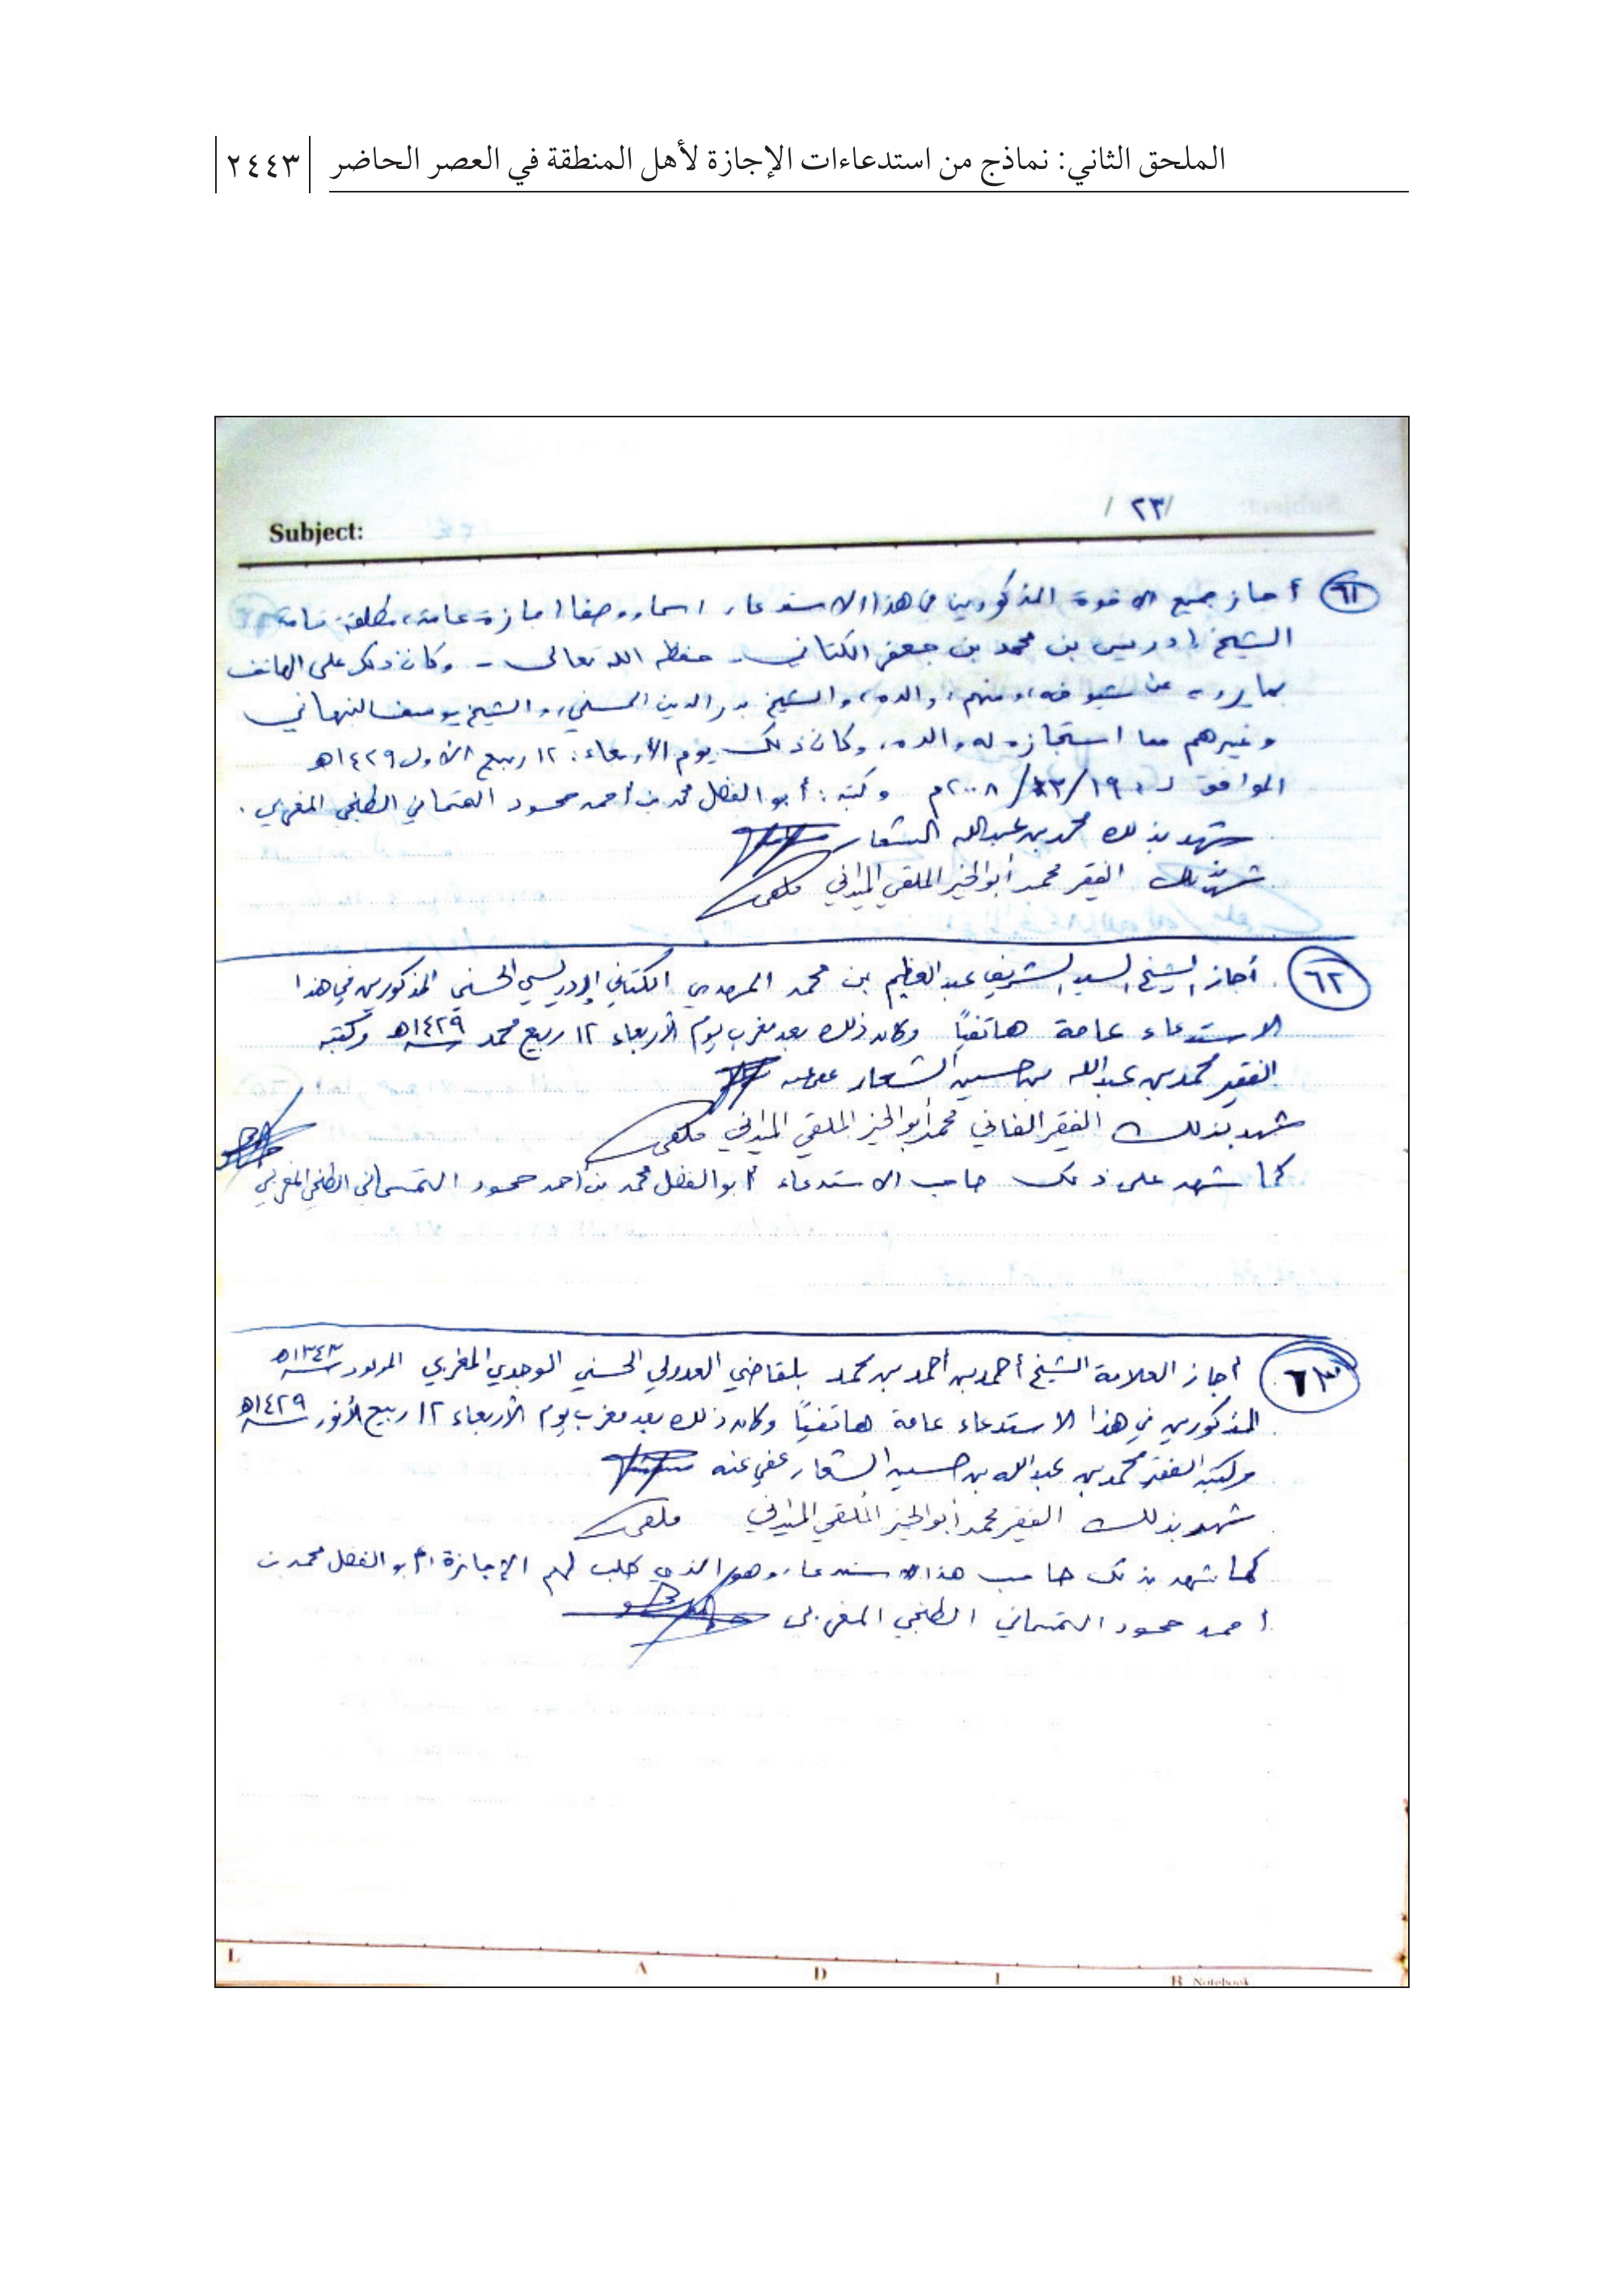 الملحق الثاني: نماذج من استدعاءات الإجازة لأهل المنطقة في العصر الحاضر ٢٤٤٣
/٢٣/
Subject:
٦١ أجاز جميع الاخوة المذكورين في هذا الاستدعاء اسما ووصفا اجازة عامة، مطلقة تامة
الشيخ ادريس بن محمد بن جعفر الكتاني - حفظه الله تعالى - وكان ذلك على الهاتف
بما يرويه عن شيوخه، ومنهم: والده، والشيخ بدر الدين الحسني، والشيخ يوسف النبهاني
وغيرهم مما استجازه له والده، وكان ذلك يوم الأربعاء: ١٢ ربيع الأول ١٤٢٩هـ
الموافق لـ ١٩/٣/٢٠٠٨م وكتبه: أبو الفضل محمد بن أحمد حمود التمسماني الطنجي المغربي.
شهد بذلك محمد بن عبدالله الشعار
شهد بذلك الفقير محمد أبو الخير الملقي الميداني
٦٢ أجاز الشيخ السيد الشريف عبد العظيم بن محمد المهدي الكتاني الإدريسي الحسني المذكورين في هذا
الاستدعاء عامة هاتفيًا وكان ذلك بعد مغرب يوم الأربعاء ١٢ ربيع محمد سنة ١٤٢٩هـ وكتبه
الفقير محمد بن عبدالله بن حسين الشعار عفي عنه
شهد بذلك الفقير الفاني محمد أبو الخير الملقي الميداني
كما شهد على ذلك صاحب الاستدعاء أبو الفضل محمد بن أحمد حمود التمسماني الطنجي المغربي
٦٣ أجاز العلامة الشيخ أحمد بن أحمد بن محمد بلقاضي العدولي الحسني الوجدي المغربي المولود سنة ١٣٤٣هـ
المذكورين في هذا الاستدعاء عامة هاتفيًا وكان ذلك بعد مغرب يوم الأربعاء ١٢ ربيع الأنور سنة ١٤٢٩هـ
وكتبه الفقير محمد بن عبدالله بن حسين الشعار عفي عنه
شهد بذلك الفقير محمد أبو الخير الملقي الميداني
كما شهد بذلك صاحب هذا الاستدعاء، وهو الذي طلب لهم الإجازة أبو الفضل محمد بن
أحمد حمود التمسماني الطنجي المغربي
L A D I B Notebook